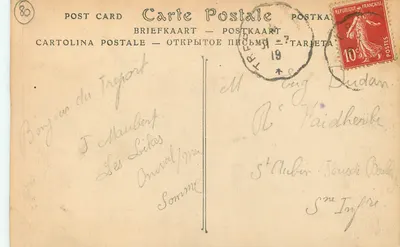 80
POST CARD Carte Postale POSTKAART
BRIEFKAART — POSTKAART
CARTOLINA POSTALE — ОТКРЫТОЕ ПИСЬМО — TARJETA
TRE
19
RÉPUBLIQUE FRANÇAISE
10c
Bonjour du Treport
J Maubert
Les Lilas
Onival/mer
Somme
M Eug Dudan
R. Faidherbe
St Aubin
Sne Infre